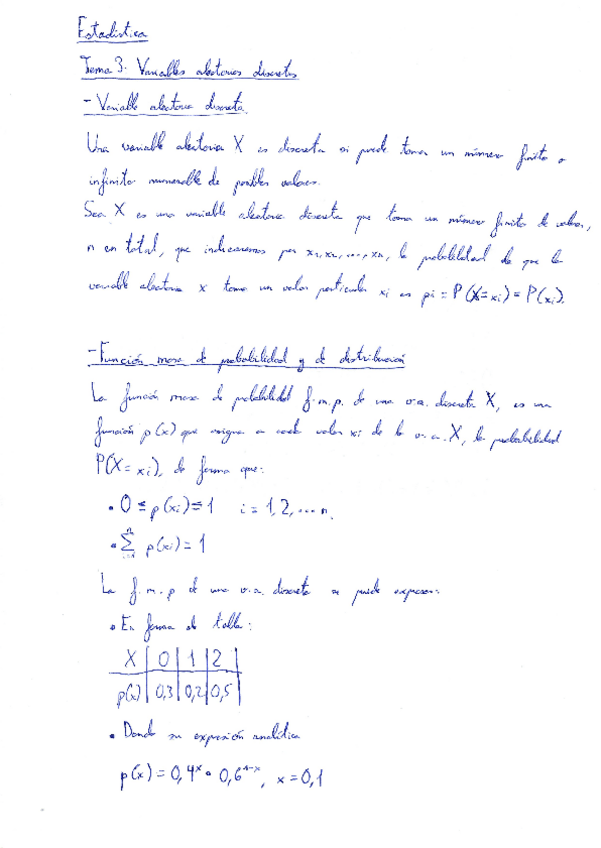 Estadística
Tema 3. Variables aleatorias discretas
- Variable aleatoria discreta
Una variable aleatoria X es discreta si puede tomar un número finito o
infinito numerable de posibles valores.
Sea X es una variable aleatoria discreta que toma un número finito de valores,
n en total, que indicaremos por x₁, x₂, ..., xn, la probabilidad de que la
variable aleatoria x tome un valor particular xi es pi = P(X = xi) = P(xi).
- Función masa de probabilidad y de distribución
La función masa de probabilidad f.m.p. de una v.a. discreta X, es una
función p(x) que asigna a cada valor xi de la v.a. X, la probabilidad
P(X = xi), de forma que:
• 0 ≤ p(xi) ≤ 1 i = 1, 2, ... n.
• Σ p(xi) = 1
La f.m.p de una v.a. discreta se puede expresar:
• En forma de tabla:
X | 0 | 1 | 2 |
p(x) | 0,3 | 0,2 | 0,5 |
• Dando su expresión analítica
p(x) = 0,4ˣ • 0,6¹⁻ˣ, x = 0,1